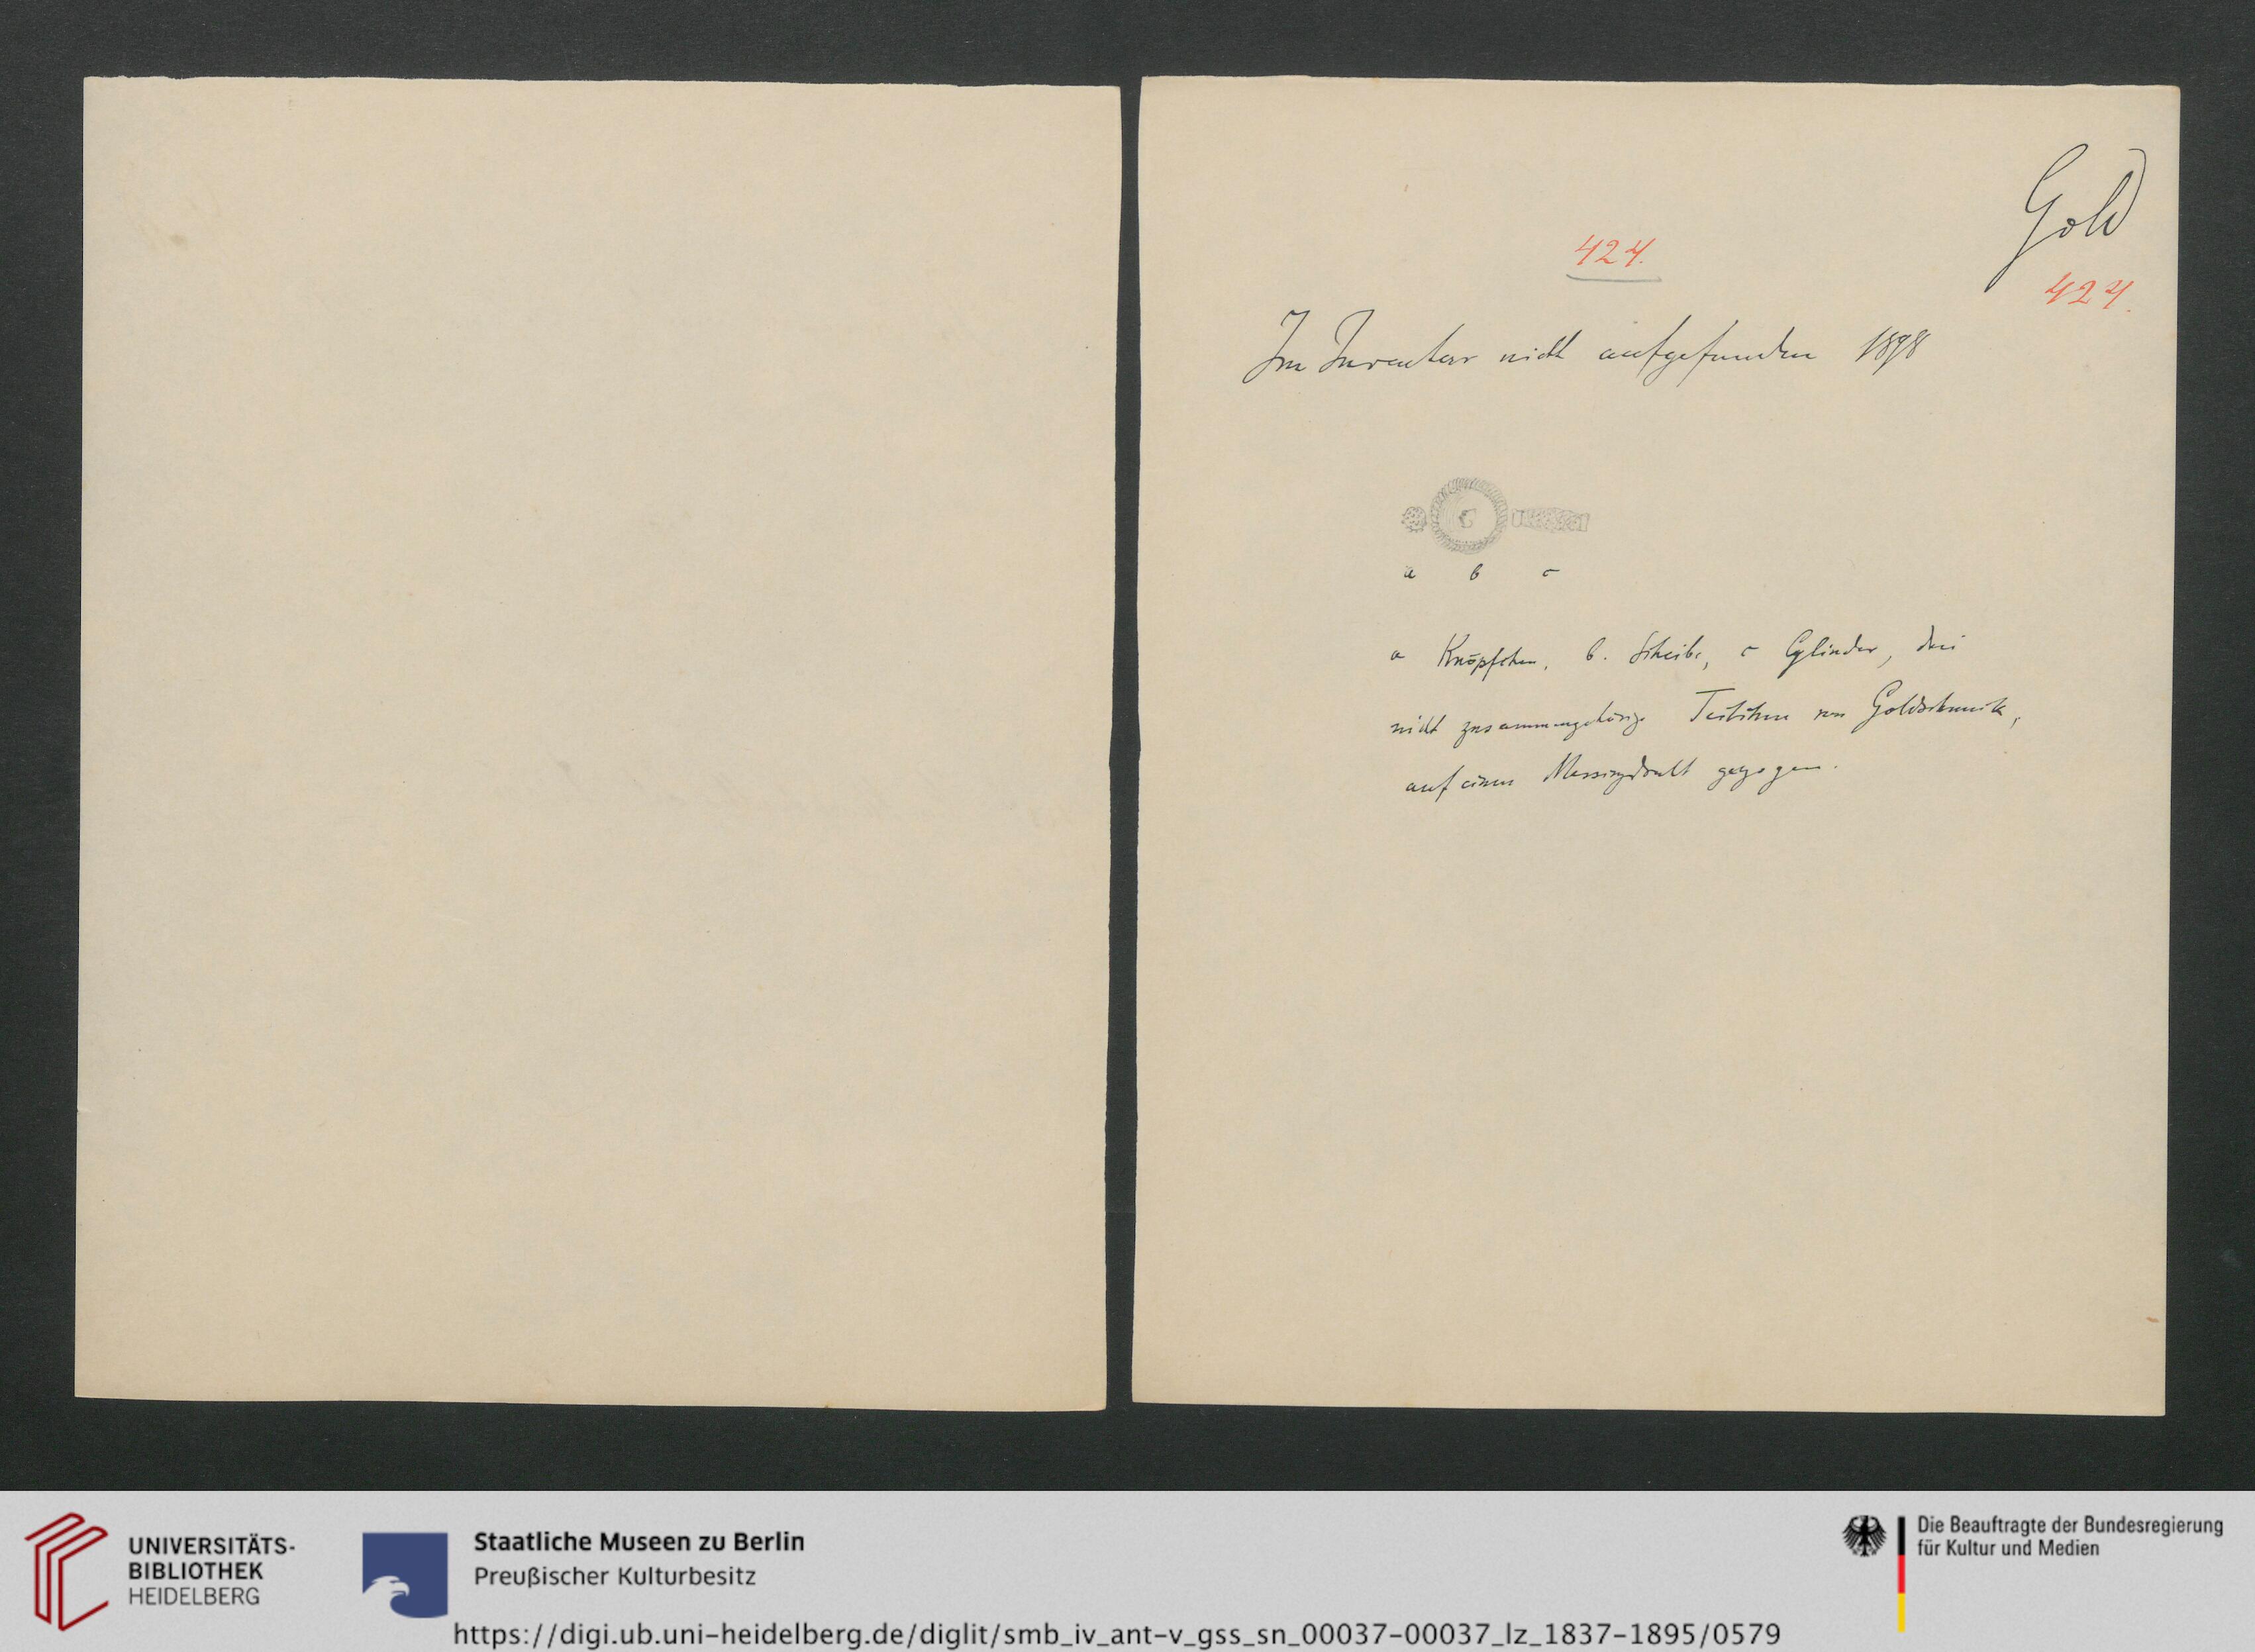 Gold
424.
424.
Im Inventar nicht aufgefunden 1898
a b c
a Knöpfchen, b. Scheibe, c Cylinder, drei
nicht zusammengehörige Teilchen von Goldschmuck,
auf einen Messingdraht gezogen.
UNIVERSITÄTS-
BIBLIOTHEK
HEIDELBERG
Staatliche Museen zu Berlin
Preußischer Kulturbesitz
Die Beauftragte der Bundesregierung
für Kultur und Medien
https://digi.ub.uni-heidelberg.de/diglit/smb_iv_ant-v_gss_sn_00037-00037_lz_1837-1895/0579